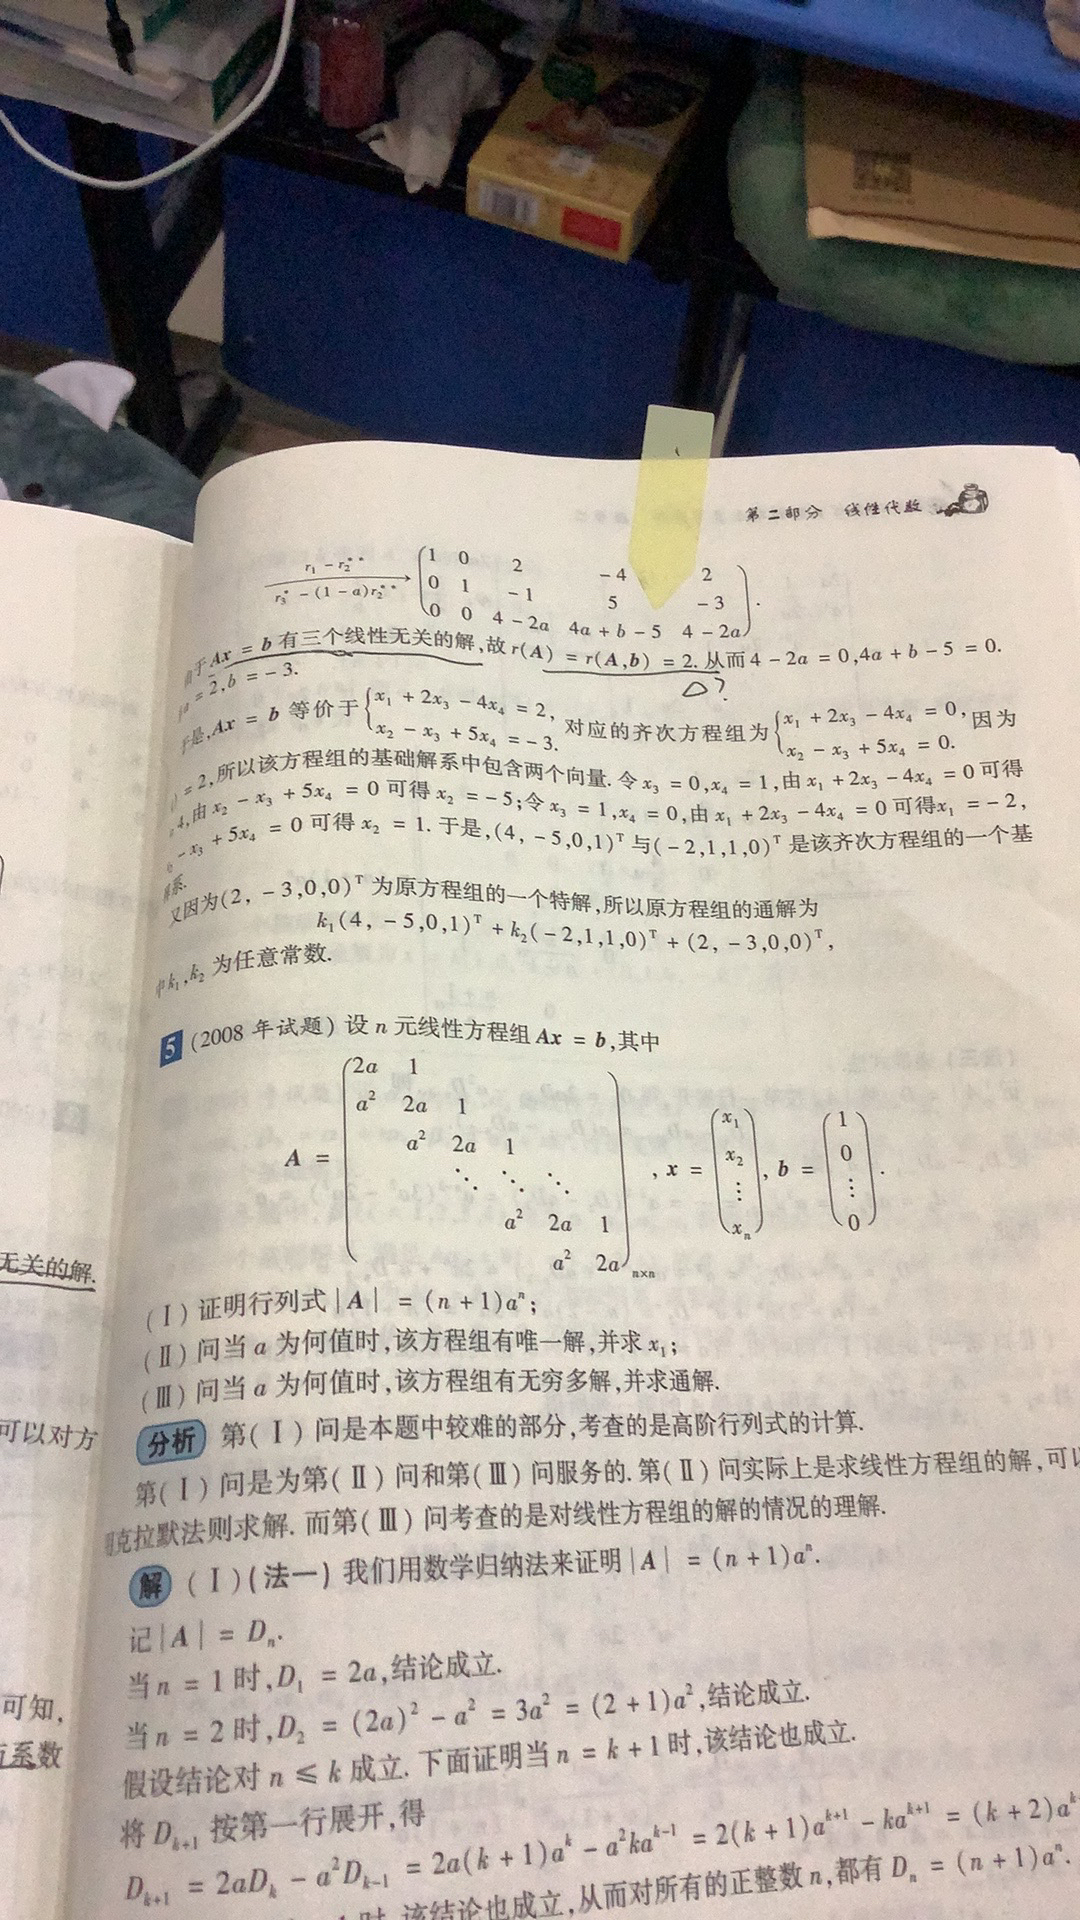 第二部分 线性代数
r₁ - r₂** / r₃* - (1 - a)r₂** →
(1 0 2 -4 2
0 1 -1 5 -3
0 0 4-2a 4a+b-5 4-2a).
于 Ax = b 有三个线性无关的解,故 r(A) = r(A,b) = 2. 从而 4 - 2a = 0,4a + b - 5 = 0.
a = 2,b = -3.
?
于是,Ax = b 等价于 {x₁ + 2x₃ - 4x₄ = 2, x₂ - x₃ + 5x₄ = -3. 对应的齐次方程组为 {x₁ + 2x₃ - 4x₄ = 0, x₂ - x₃ + 5x₄ = 0. 因为
= 2,所以该方程组的基础解系中包含两个向量. 令 x₃ = 0,x₄ = 1,由 x₁ + 2x₃ - 4x₄ = 0 可得
4,由 x₂ - x₃ + 5x₄ = 0 可得 x₂ = -5;令 x₃ = 1,x₄ = 0,由 x₁ + 2x₃ - 4x₄ = 0 可得x₁ = -2,
- x₃ + 5x₄ = 0 可得 x₂ = 1. 于是,(4, -5,0,1)ᵀ 与(-2,1,1,0)ᵀ 是该齐次方程组的一个基
系.
又因为(2, -3,0,0)ᵀ 为原方程组的一个特解,所以原方程组的通解为
k₁(4, -5,0,1)ᵀ + k₂(-2,1,1,0)ᵀ + (2, -3,0,0)ᵀ,
中k₁,k₂ 为任意常数.
5 (2008 年试题) 设 n 元线性方程组 Ax = b,其中
A = (2a 1
a² 2a 1
a² 2a 1
⋱ ⋱ ⋱
a² 2a 1
a² 2a)n×n , x = (x₁ x₂ ⋮ xₙ), b = (1 0 ⋮ 0).
(Ⅰ) 证明行列式 |A| = (n + 1)aⁿ;
(Ⅱ) 问当 a 为何值时,该方程组有唯一解,并求 x₁;
(Ⅲ) 问当 a 为何值时,该方程组有无穷多解,并求通解.
分析 第(Ⅰ) 问是本题中较难的部分,考查的是高阶行列式的计算.
第(Ⅰ) 问是为第(Ⅱ) 问和第(Ⅲ) 问服务的. 第(Ⅱ) 问实际上是求线性方程组的解,可以
克拉默法则求解. 而第(Ⅲ) 问考查的是对线性方程组的解的情况的理解.
解 (Ⅰ)(法一) 我们用数学归纳法来证明 |A| = (n + 1)aⁿ.
记 |A| = Dₙ.
当 n = 1 时,D₁ = 2a,结论成立.
当 n = 2 时,D₂ = (2a)² - a² = 3a² = (2 + 1)a²,结论成立.
假设结论对 n ≤ k 成立. 下面证明当 n = k + 1 时,该结论也成立.
将 Dₖ₊₁ 按第一行展开,得
Dₖ₊₁ = 2aDₖ - a²Dₖ₋₁ = 2a(k + 1)aᵏ - a²kaᵏ⁻¹ = 2(k + 1)aᵏ⁺¹ - kaᵏ⁺¹ = (k + 2)aᵏ
时,该结论也成立,从而对所有的正整数 n,都有 Dₙ = (n + 1)aⁿ.
无关的解.
可以对方
可知,
系数